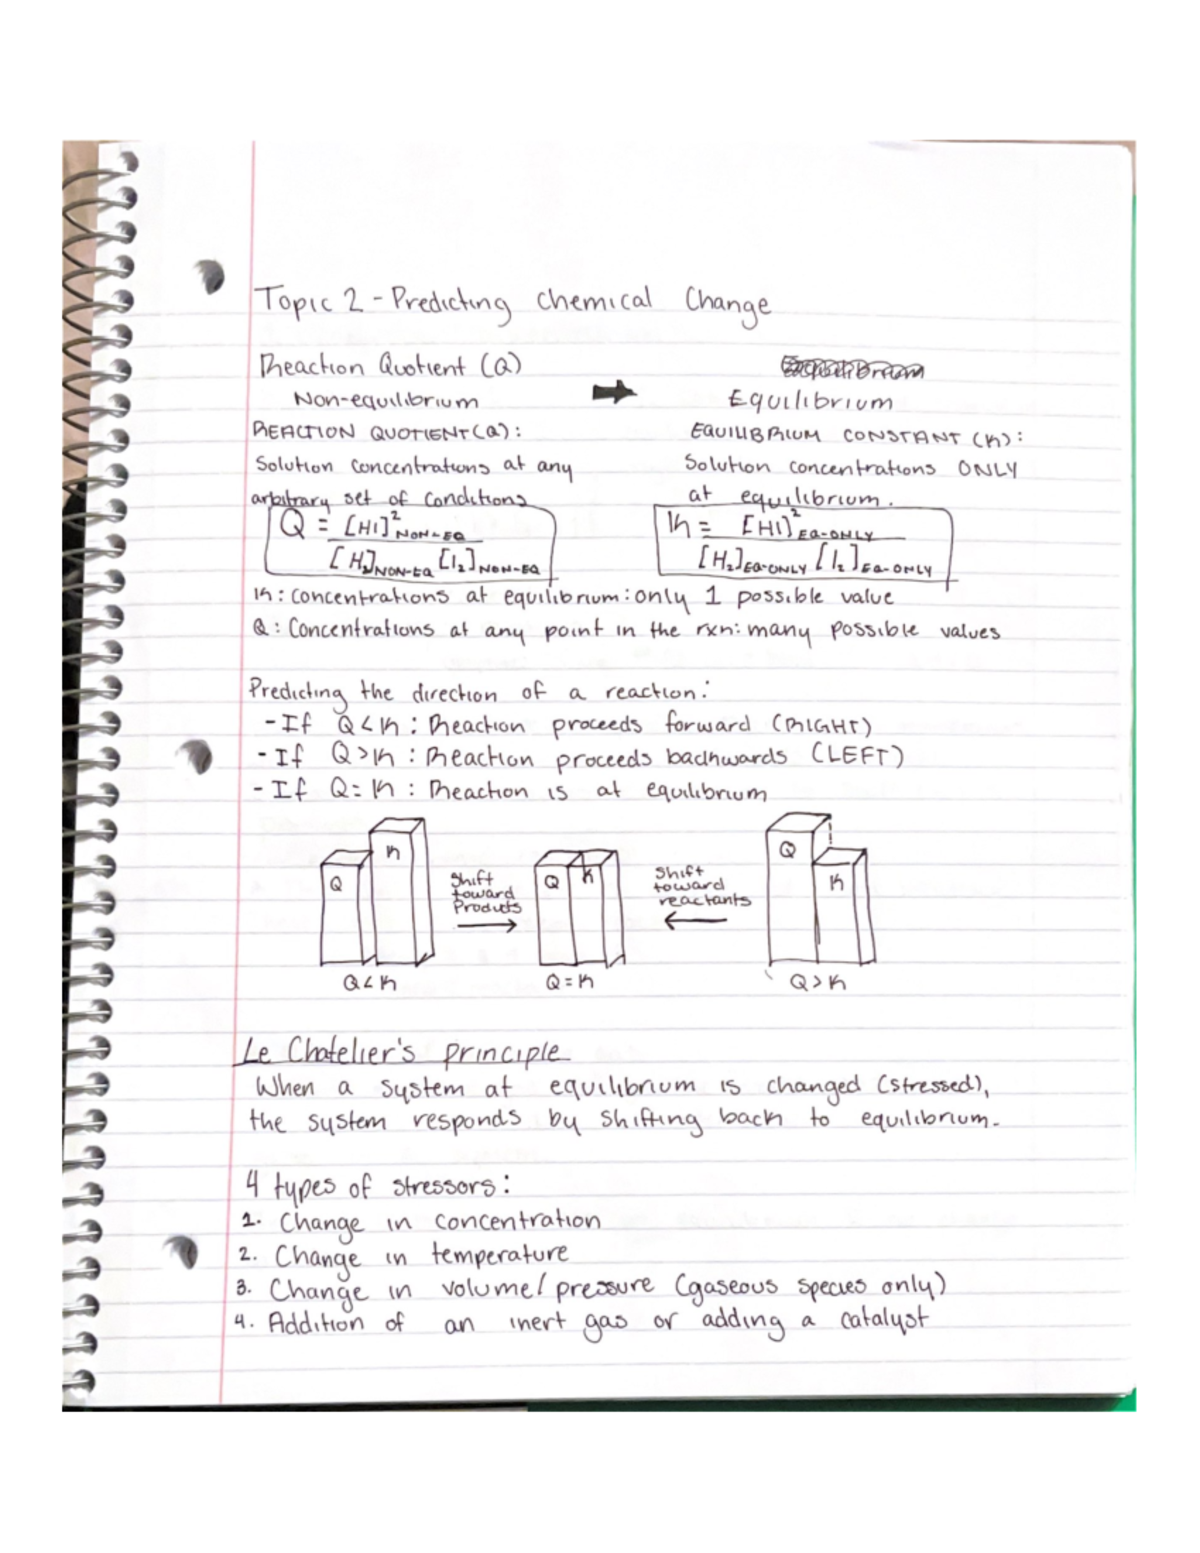 Topic 2 - Predicting Chemical Change
Reaction Quotient (Q)
Equilibrium
Non-equilibrium → Equilibrium
REACTION QUOTIENT (Q): EQUILIBRIUM CONSTANT (K):
Solution concentrations at any Solution concentrations ONLY
arbitrary set of conditions at equilibrium.
Q = [HI]²NON-EQ K = [HI]²EQ-ONLY
[H₂]NON-EQ [I₂]NON-EQ [H₂]EQ-ONLY [I₂]EQ-ONLY
K: Concentrations at equilibrium: only 1 possible value
Q: Concentrations at any point in the rxn: many possible values
Predicting the direction of a reaction:
- If Q < K : Reaction proceeds forward (RIGHT)
- If Q > K : Reaction proceeds backwards (LEFT)
- If Q = K : Reaction is at equilibrium
Q K
Shift
toward
Products
→
Q K
Shift
toward
reactants
←
Q K
Q < K Q = K Q > K
Le Chatelier's principle
When a system at equilibrium is changed (stressed),
the system responds by shifting back to equilibrium.
4 types of stressors:
1. Change in concentration
2. Change in temperature
3. Change in volume/pressure (gaseous species only)
4. Addition of an inert gas or adding a catalyst